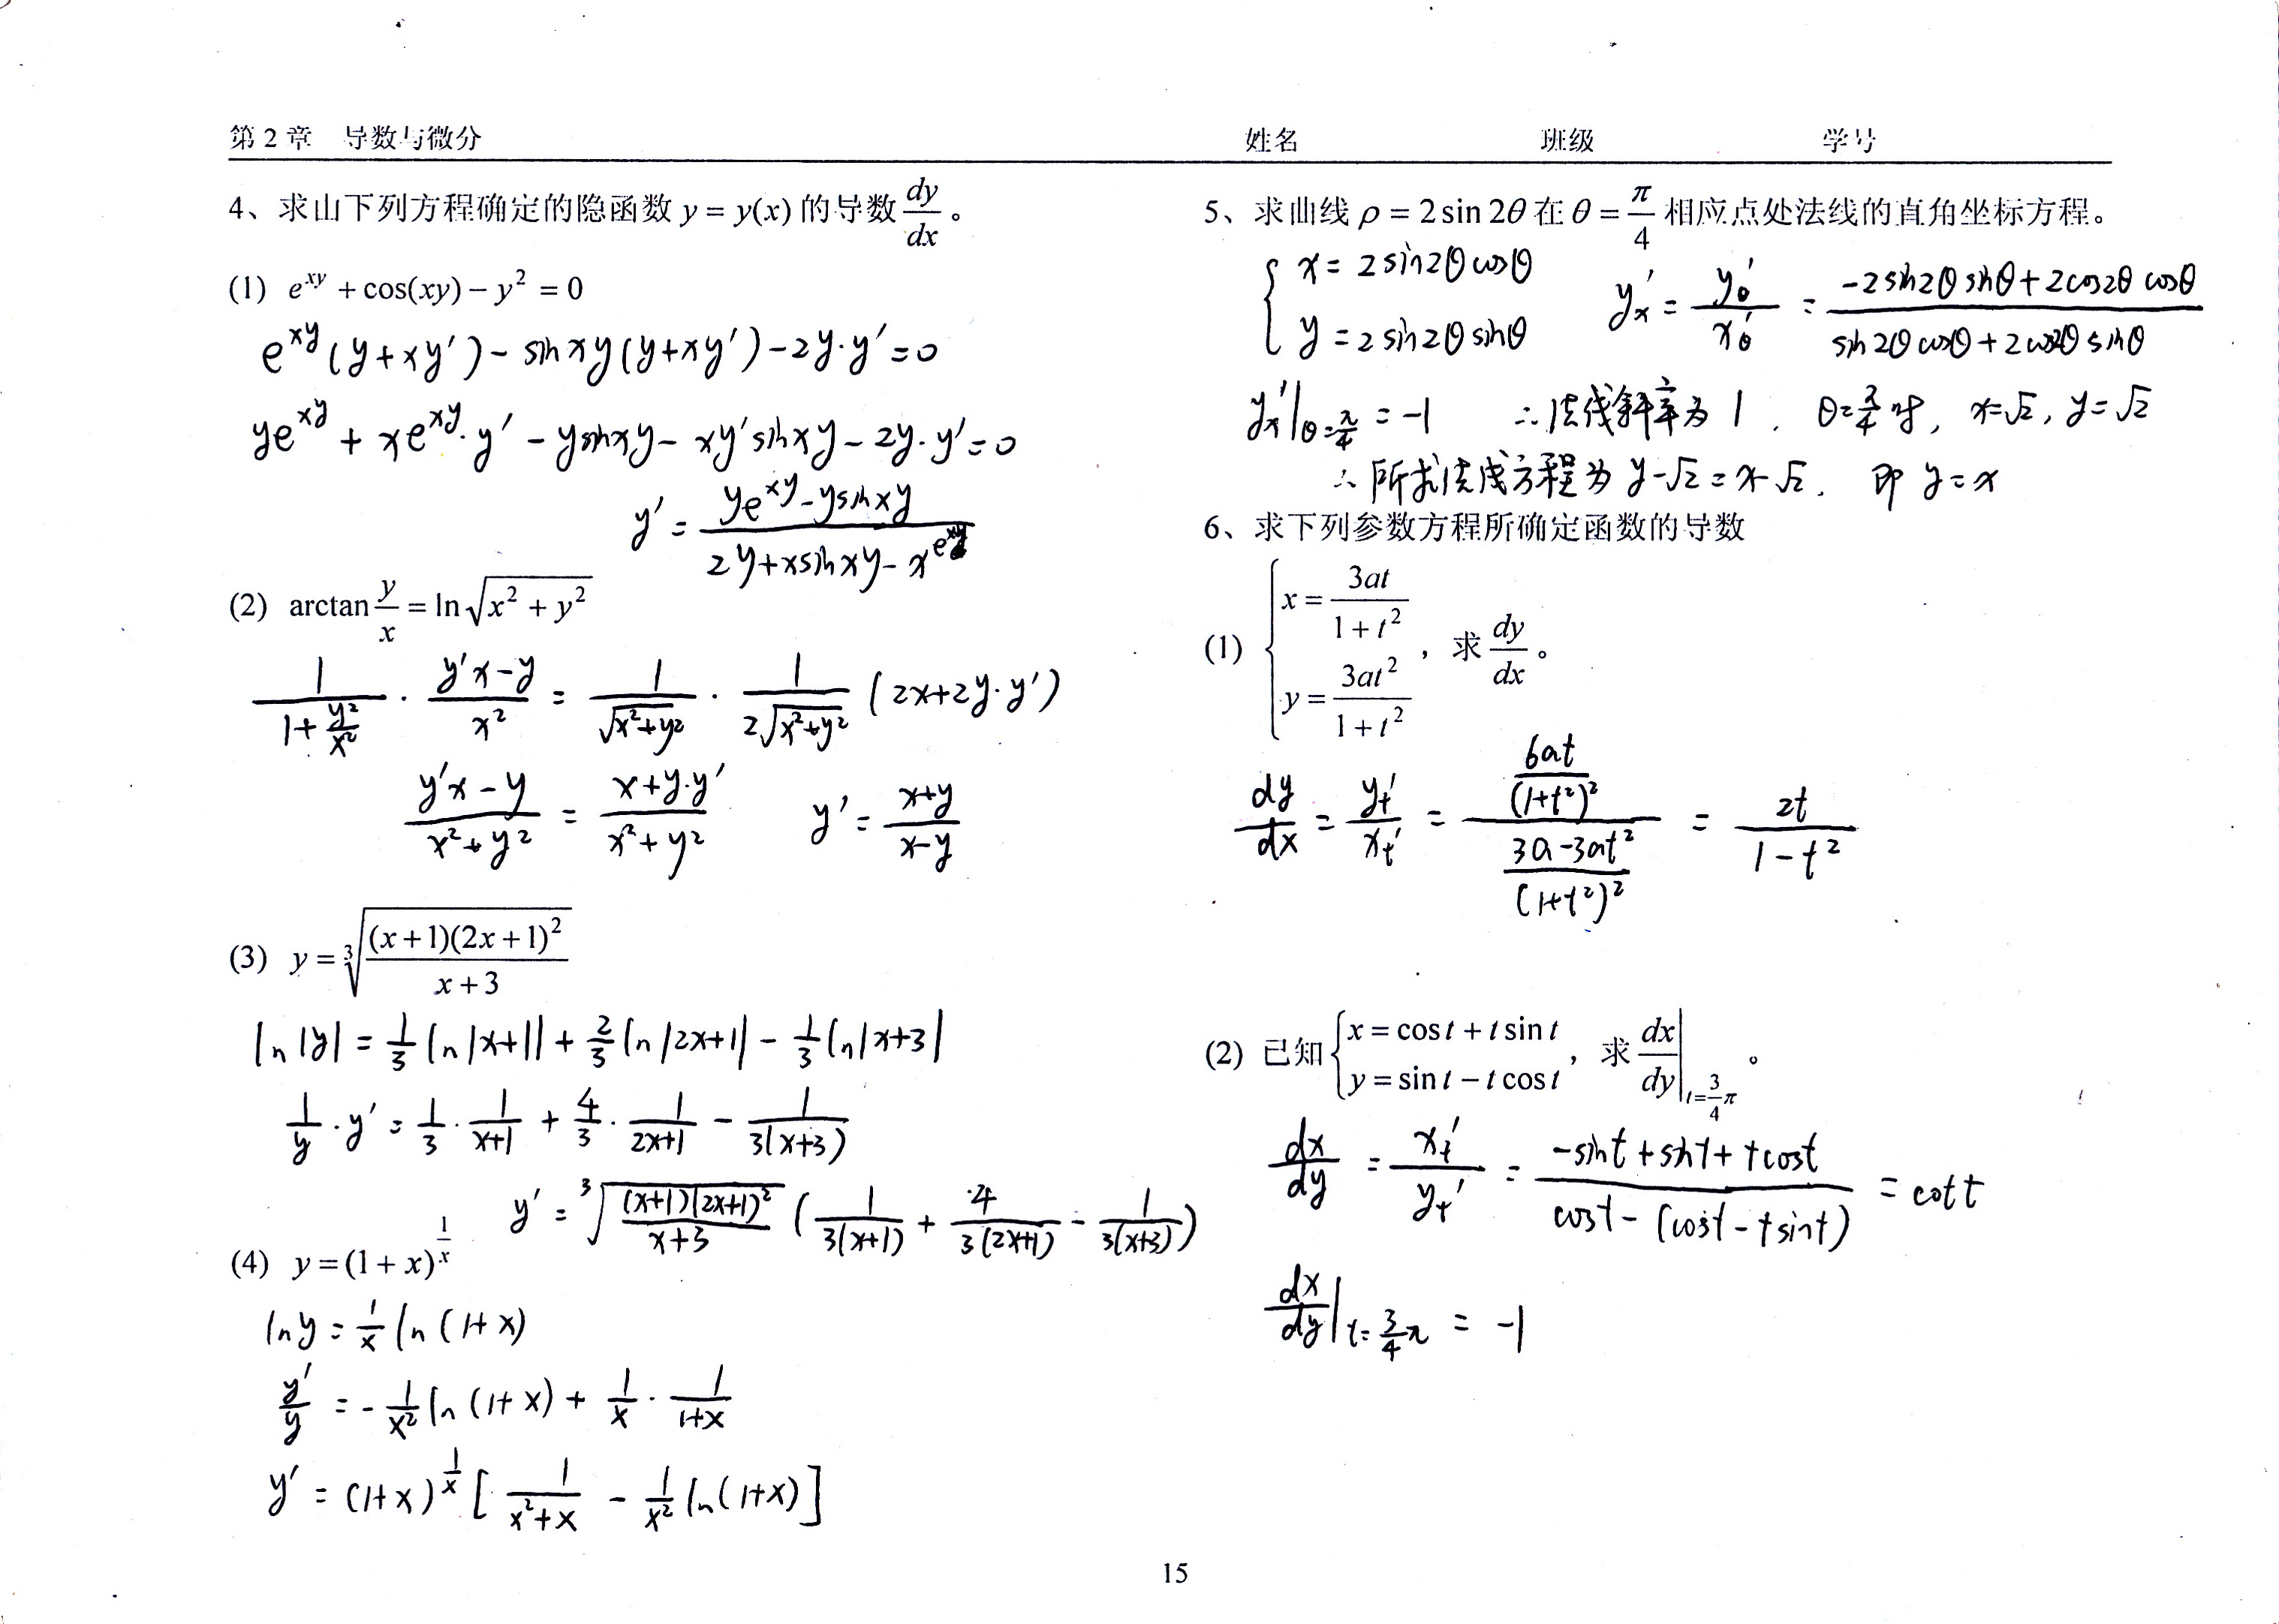 第 2 章 导数与微分 姓名 班级 学号
4、求出下列方程确定的隐函数 y = y(x) 的导数 dy/dx 。
(1) e^{xy} + cos(xy) − y² = 0
e^{xy}(y+xy′) − sin xy(y+xy′) − 2y·y′ = 0
ye^{xy} + xe^{xy}·y′ − ysinxy − xy′sinxy − 2y·y′ = 0
y′ = (ye^{xy} − ysinxy)/(2y+xsinxy − xe^{xy})
(2) arctan y/x = ln√(x² + y²)
1/(1+y²/x²) · (y′x−y)/x² = 1/√(x²+y²) · 1/(2√(x²+y²)) (2x+2y·y′)
(y′x−y)/(x²+y²) = (x+y·y′)/(x²+y²) y′ = (x+y)/(x−y)
(3) y = ∛((x+1)(2x+1)²/(x+3))
ln|y| = 1/3 ln|x+1| + 2/3 ln|2x+1| − 1/3 ln|x+3|
1/y · y′ = 1/3 · 1/(x+1) + 4/3 · 1/(2x+1) − 1/(3(x+3))
y′ = ∛((x+1)(2x+1)²/(x+3)) (1/(3(x+1)) + 4/(3(2x+1)) − 1/(3(x+3)))
(4) y = (1+x)^{1/x}
lny = 1/x ln(1+x)
y′/y = −1/x² ln(1+x) + 1/x · 1/(1+x)
y′ = (1+x)^{1/x} [1/(x²+x) − 1/x² ln(1+x)]
5、求曲线 ρ = 2sin2θ 在 θ = π/4 相应点处法线的直角坐标方程。
{ x = 2sin2θcosθ
y = 2sin2θsinθ y′ₓ = y′_θ/x′_θ = (−2sin2θsinθ+2cos2θcosθ)/(sin2θcosθ+2cos2θsinθ)
y′ₓ|θ=π/4 = −1 ∴法线斜率为 1 . θ=π/4 时, x=√2, y=√2
∴所求法线方程为 y−√2 = x−√2 . 即 y=x
6、求下列参数方程所确定函数的导数
(1) { x = 3at/(1+t²)
y = 3at²/(1+t²) ，求 dy/dx 。
dy/dx = y′ₜ/x′ₜ = (6at/(1+t²)²)/((3a−3at²)/(1+t²)²) = 2t/(1−t²)
(2) 已知 { x = cost + tsint
y = sint − tcost ，求 dx/dy|t=3/4π 。
dx/dy = x′ₜ/y′ₜ = (−sint+sint+tcost)/(cost−(cost−tsint)) = cott
dx/dy|t=3/4π = −1
15